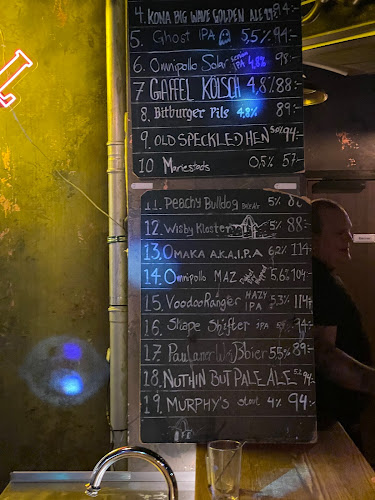 4. KONA BIG WAVE GOLDEN ALE 94:-
5. Ghost IPA 5,5% 94:-
6. Omnipollo Solar IPA 4,8% 98:-
7 GAFFEL KÖLSCH 4,8% 88:-
8. Bitburger Pils 4,8% 89:-
9. OLD SPECKLED HEN 94:-
10 Mariestads 0,5% 57:-
11. Peachy Bulldog 5%
12. Wisby Kloster 5% 88:-
13. OMAKA A.K.A. I.P.A 6,2% 114:-
14. Omnipollo MAZ 5.6% 104:-
15. Voodoo Ranger HAZY IPA 5.3% 114:-
16. Shape Shifter IPA
17 Paulaner Weißbier 5,5% 89:-
18. NUTHIN BUT PALE ALE 94:-
19. MURPHY'S stout 4% 94:-